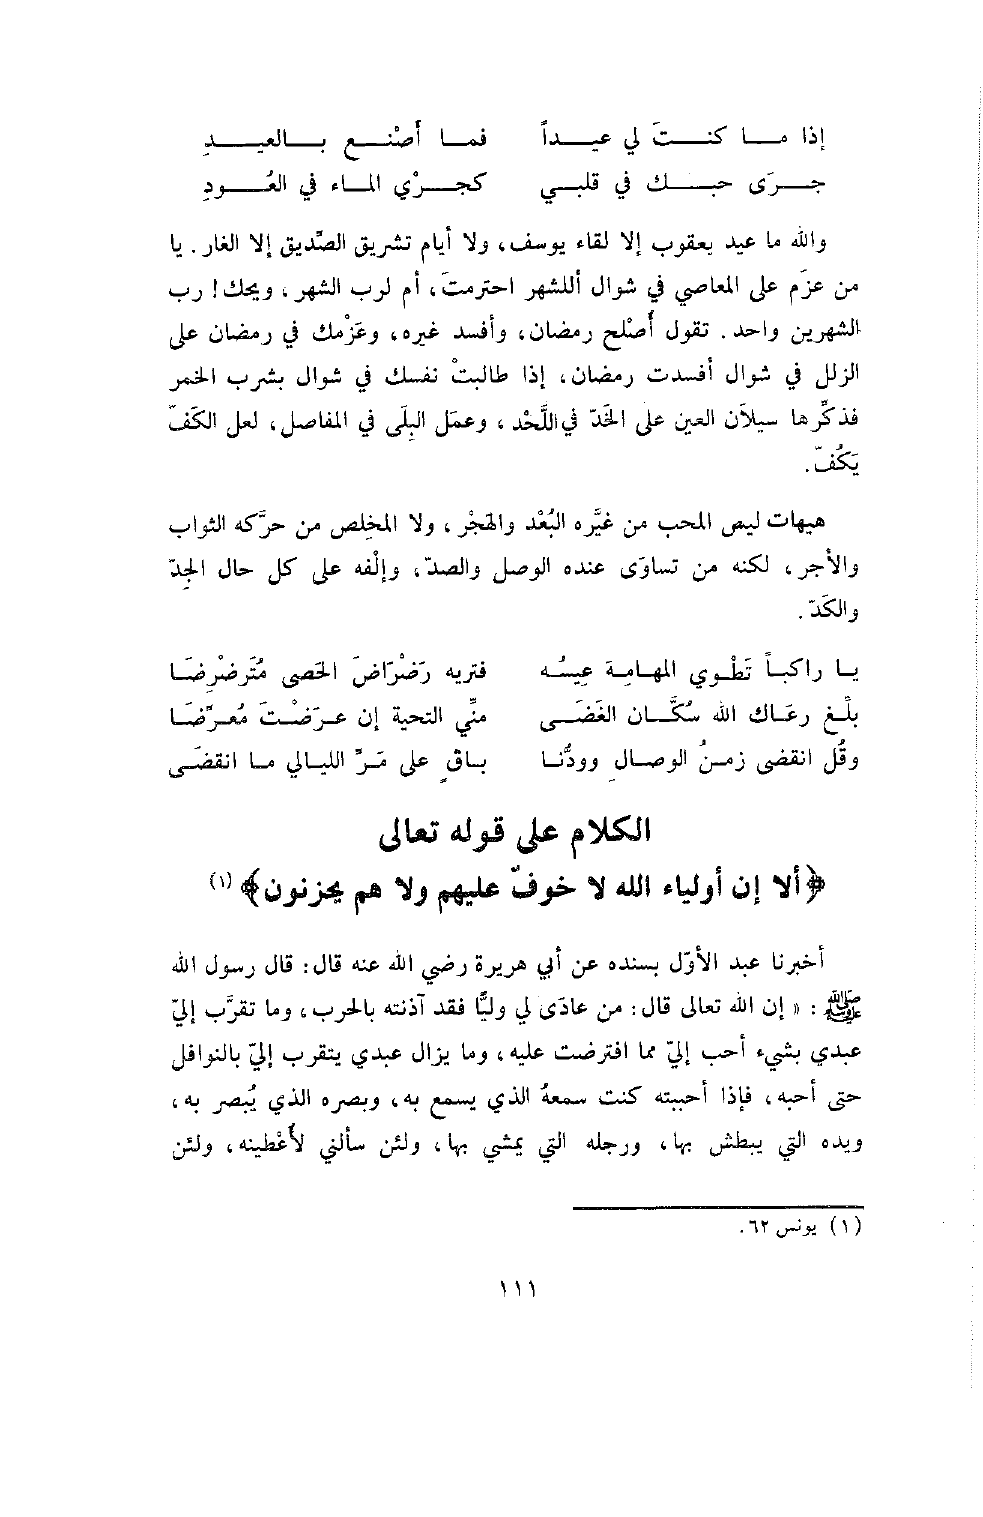 إذا مـا كنـتَ لي عيـداً فمـا أصْنـع بـالعيـدِ
جـرَى حبـك في قلبـي كجـرْي المـاء في العُـودِ
والله ما عيد يعقوب إلا لقاء يوسف، ولا أيام تشريق الصّديق إلا الغار. يا
من عزَم على المعاصي في شوال أللشهر احترمتَ، أم لرب الشهر، ويحك! رب
الشهرين واحد. تقول أُصْلح رمضان، وأفسد غيره، وعَزْمك في رمضان على
الزلل في شوال أفسدت رمضان، إذا طالبتْ نفسك في شوال بشرب الخمر
فذكِّرها سيلاَن العين على الخَدّ في اللَّحْد، وعمَل البِلَى في المفاصل، لعل الكَفّ
يَكُفّ.
هيهات ليس المحب من غيَّره البُعْد والهجْر، ولا المخلِص من حرَّكه الثواب
والأجر، لكنه من تساوَى عنده الوصل والصدّ، وإلْفه على كل حال الجِدّ
والكَدّ.
يـا راكبـاً تَطْـوي المهـامِـة عِيسُـه فتريه رَضْرَاضَ الحَصى مُتَرضْرِضَـا
بلِّـغ رعَـاك الله سُكَّـان الغَضَـى منِّي التحية إن عـرَضْـتَ مُعـرِّضَـا
وقُل انقضى زمـنُ الوصـالِ وودُّنـا بـاقٍ على مَـرِّ الليـالي مـا انقضَـى
الكلام على قوله تعالى
﴿ألا إن أولياء الله لا خوفٌ عليهم ولا هم يحزنون﴾ (١)
أخبرنا عبد الأوّل بسنده عن أبي هريرة رضي الله عنه قال: قال رسول الله
ﷺ: « إن الله تعالى قال: من عادَى لي وليًّا فقد آذنته بالحرب، وما تقرَّب إليّ
عبدي بشيء أحب إليّ مما افترضت عليه، وما يزال عبدي يتقرب إليّ بالنوافل
حتى أحبه، فإذا أحببته كنت سمعهُ الذي يسمع به، وبصره الذي يُبصر به،
ويده التي يبطش بها، ورجله التي يمشي بها، ولئن سألني لأعْطينه، ولئن
(١) يونس ٦٢.
١١١